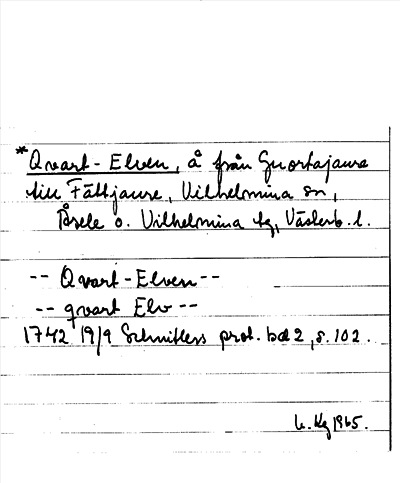 *Qvart-Elven, å från Guortajaure
till Fättjaure, Vilhelmina sn,
Åsele o. Vilhelmina tg, Västerb. l.
-- Qvart-Elven --
-- qvart Elv --
1742 19/9 Schnitlers prot. bd 2, s. 102.
1965.